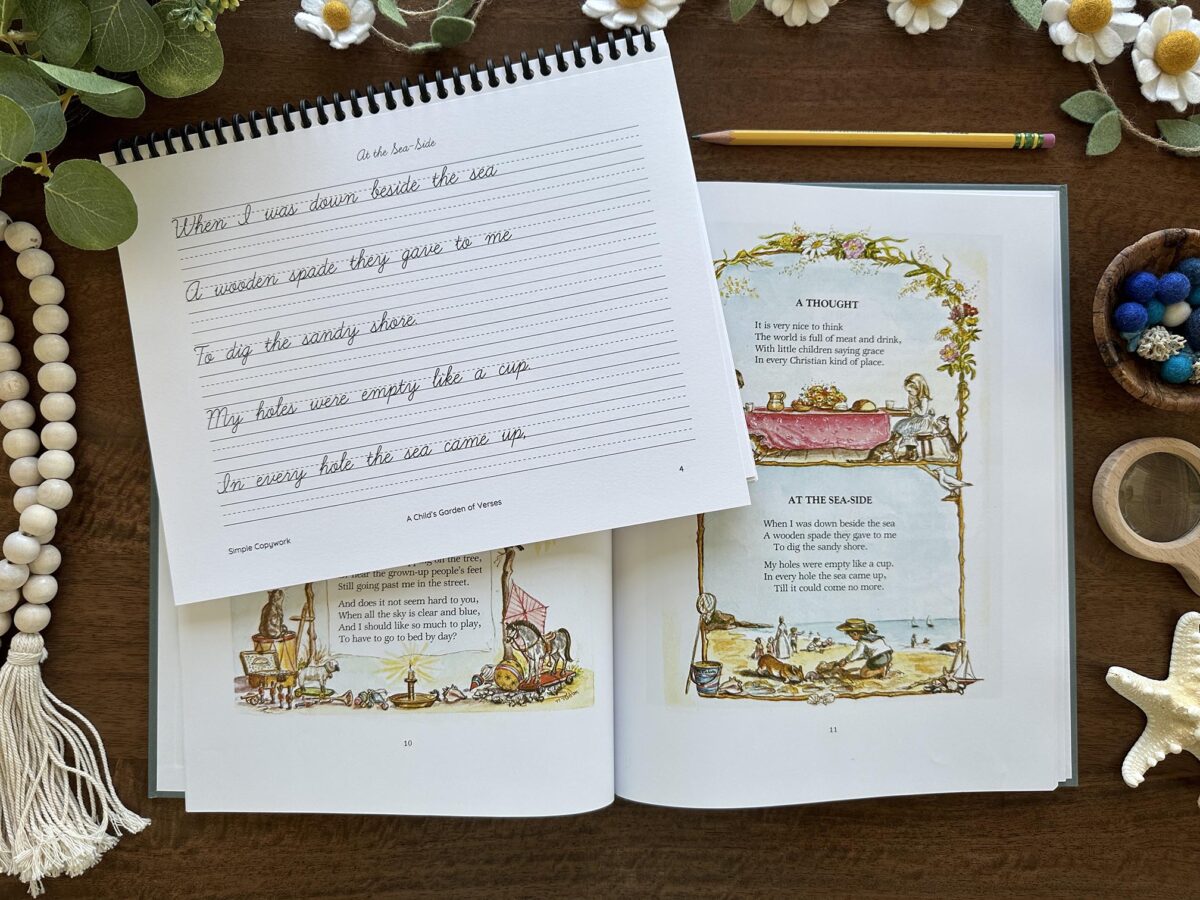 At the Sea-Side
When I was down beside the sea
A wooden spade they gave to me
To dig the sandy shore.
My holes were empty like a cup.
In every hole the sea came up,
4
A Child's Garden of Verses
Simple Copywork
on the tree,
hear the grown-up people's feet
Still going past me in the street.
And does it not seem hard to you,
When all the sky is clear and blue,
And I should like so much to play,
To have to go to bed by day?
10
A THOUGHT
It is very nice to think
The world is full of meat and drink,
With little children saying grace
In every Christian kind of place.
AT THE SEA-SIDE
When I was down beside the sea
A wooden spade they gave to me
To dig the sandy shore.
My holes were empty like a cup.
In every hole the sea came up,
Till it could come no more.
11